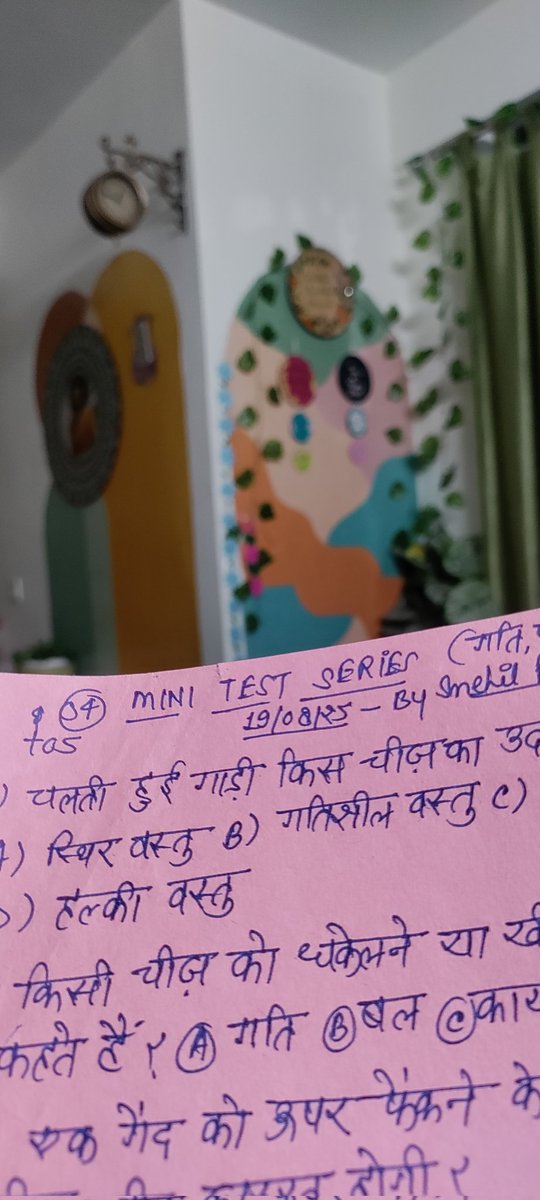 34 MINI TEST SERIES (गति,
19/08/25 - By Snehil
चलती हुई गाड़ी किस चीज़ का
A) स्थिर वस्तु B) गतिशील वस्तु C)
D) हल्की वस्तु
किसी चीज़ को धकेलने या
कहते हैं? (A) गति (B) बल (C)
एक गेंद को ऊपर फेंकने के
होगी ?